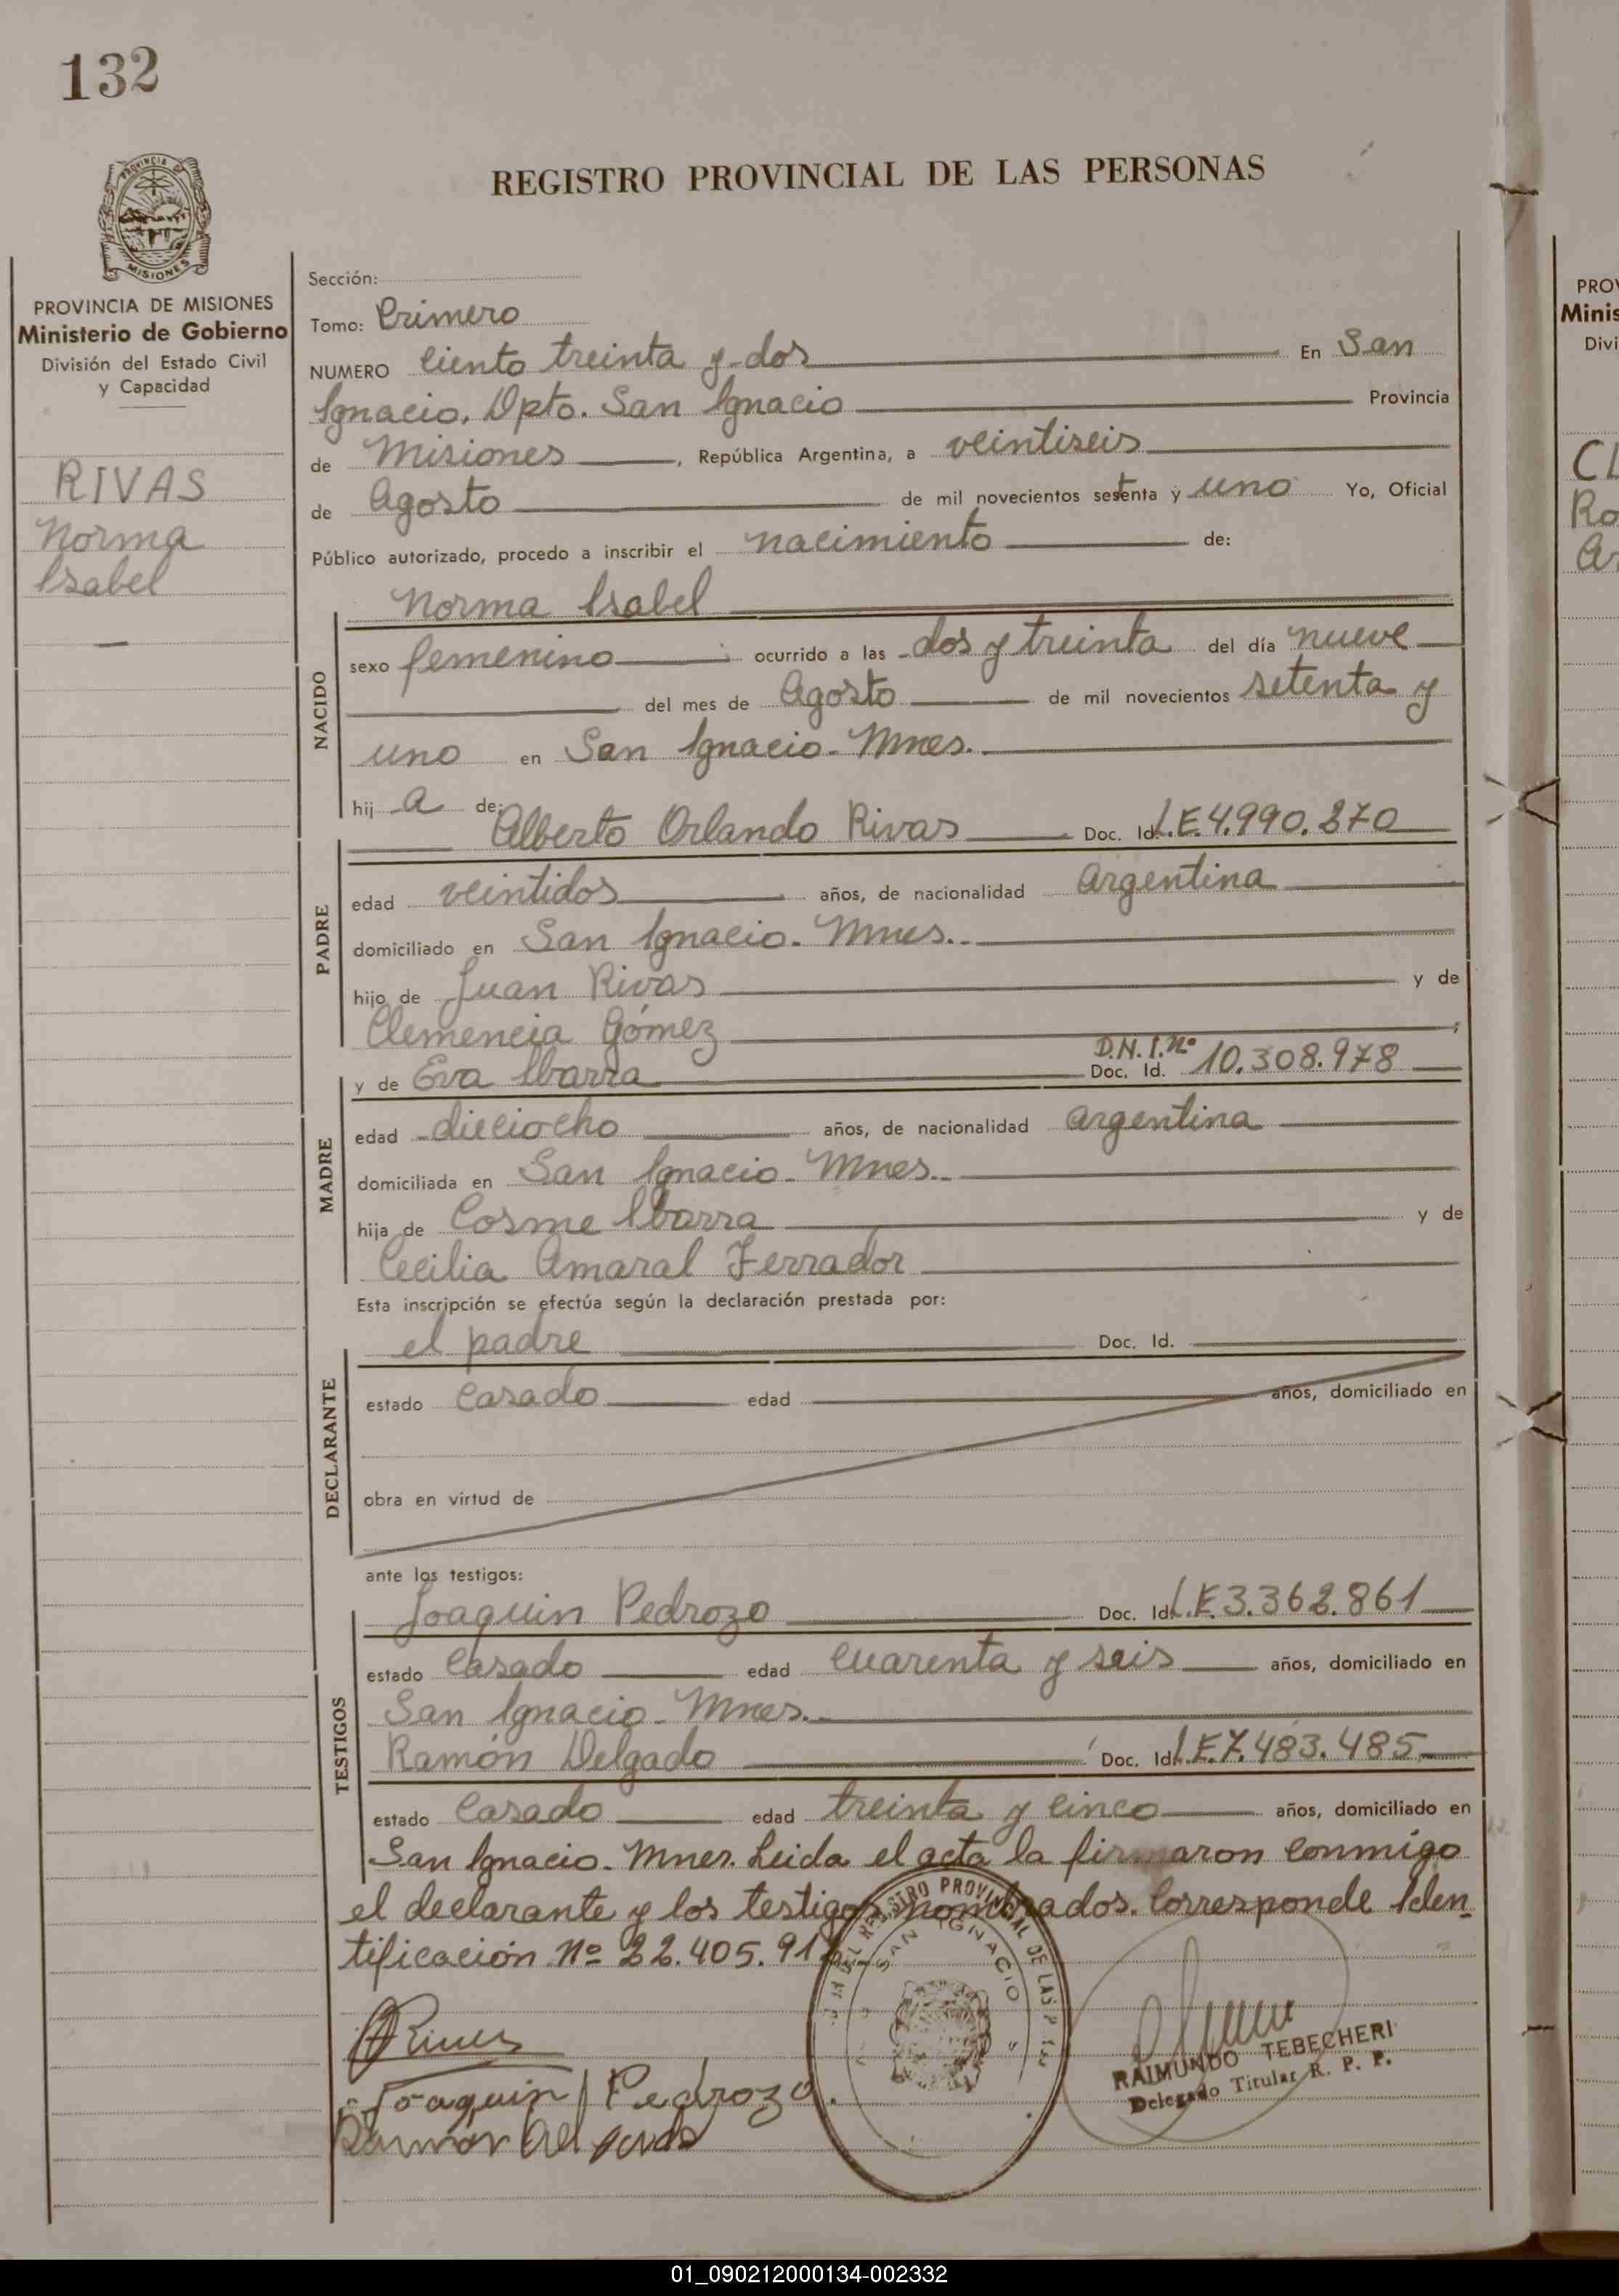 132
PROVINCIA DE
MISIONES
REGISTRO PROVINCIAL DE LAS PERSONAS
PROVINCIA DE MISIONES
Ministerio de Gobierno
División del Estado Civil
y Capacidad
RIVAS
Norma
Isabel
Sección:
Tomo: Primero
NUMERO Ciento treinta y dos En San
Ignacio, Dpto. San Ignacio Provincia
de Misiones, República Argentina, a veintiseis
de Agosto de mil novecientos setenta y uno Yo, Oficial
Público autorizado, procedo a inscribir el nacimiento de:
Norma Isabel
NACIDO
sexo femenino ocurrido a las dos y treinta del día nueve
del mes de Agosto de mil novecientos setenta y
uno en San Ignacio. Mnes.
hij a de:
Alberto Orlando Rivas Doc. Id. L.E. 4.990.270
PADRE
edad veintidos años, de nacionalidad Argentina
domiciliado en San Ignacio. Mnes.
hijo de Juan Rivas y de
Clemencia Gómez;
y de Eva Ibarra D.N.I. Nº Doc. Id. 10.308.978
MADRE
edad dieciocho años, de nacionalidad Argentina
domiciliada en San Ignacio. Mnes.
hija de Cosme Ibarra y de
Cecilia Amaral Ferrador
Esta inscripción se efectúa según la declaración prestada por:
el padre Doc. Id.
DECLARANTE
estado Casado edad años, domiciliado en
obra en virtud de
ante los testigos:
Joaquin Pedrozo Doc. Id. L.E. 3.362.861
TESTIGOS
estado Casado edad Cuarenta y seis años, domiciliado en
San Ignacio. Mnes.
Ramón Delgado Doc. Id. L.E. 7.483.485
estado Casado edad treinta y cinco años, domiciliado en
San Ignacio. Mnes. Leida el acta la firmaron conmigo
el declarante y los testigos nombrados. Corresponde Iden-
tificación Nº 22.405.91
REGISTRO PROVINCIAL DE LAS
SAN IGNACIO
Joaquin Pedrozo.
Ramon Delgado
RAIMUNDO TEBECHERI
Delegado Titular R. P. P.
PRO
Minis
Divi
CL
Ro
01_090212000134-002332